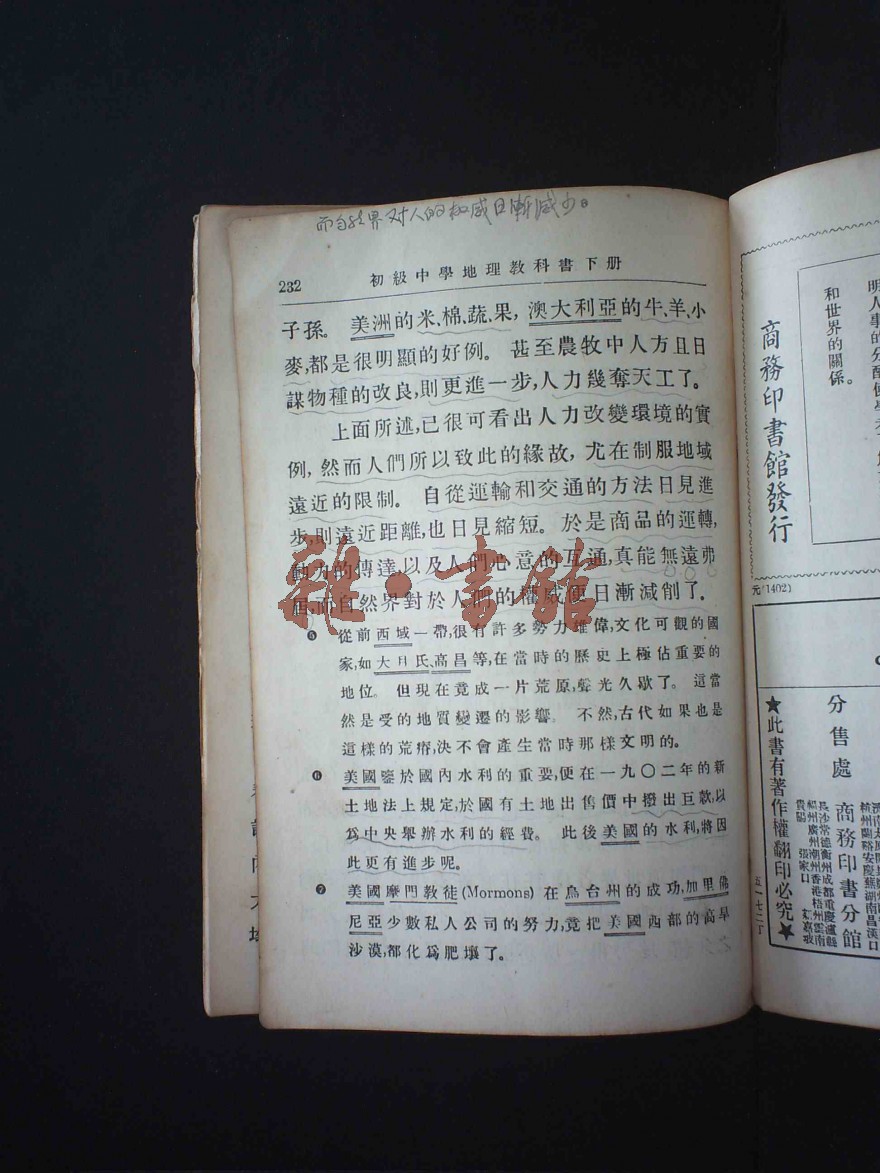 而自然界对人的权威日漸減少。
232
初級中學地理教科書下册
子孫。美洲的米、棉、蔬、果，澳大利亞的牛、羊、小
麥，都是很明顯的好例。甚至農牧中人方且日
謀物種的改良，則更進一步，人力幾奪天工了。
上面所述，已很可看出人力改變環境的實
例，然而人們所以致此的緣故，尤在制服地域
遠近的限制。自從運輸和交通的方法日見進
步，則遠近距離，也日見縮短。於是商品的運轉，
動力的傳達，以及人們心意的互通，真能無遠弗
屆，而自然界對於人們的權威便日漸減削了。
❺ 從前西域一帶，很有許多勢力雄偉，文化可觀的國
家，如大月氏、高昌等，在當時的歷史上極佔重要的
地位。但現在竟成一片荒原，聲光久歇了。這當
然是受的地質變遷的影響。不然，古代如果也是
這樣的荒瘠，決不會產生當時那樣文明的。
❻ 美國鑒於國內水利的重要，便在一九〇二年的新
土地法上規定，於國有土地出售價中撥出巨款，以
為中央舉辦水利的經費。此後美國的水利，將因
此更有進步呢。
❼ 美國摩門教徒(Mormons)在烏台州的成功，加里佛
尼亞少數私人公司的努力，竟把美國西部的高旱
沙漠，都化為肥壤了。
雜·書館
和世界的關係。
商務印書館發行
元(1402)
分售處
商務印書分館
★此書有著作權翻印必究★
五一七二丁